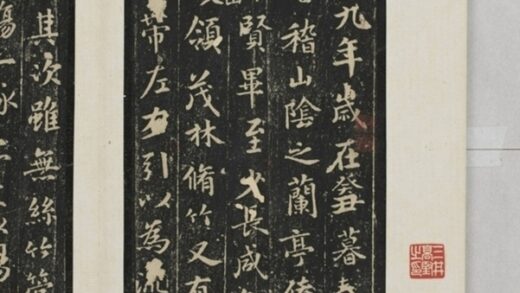 九年歲在癸丑暮春
稽山陰之蘭亭脩
賢畢至少長咸
領茂林脩竹又有
帶左右引以為流
其次雖無絲竹管
觴一詠亦
三井高堅之印